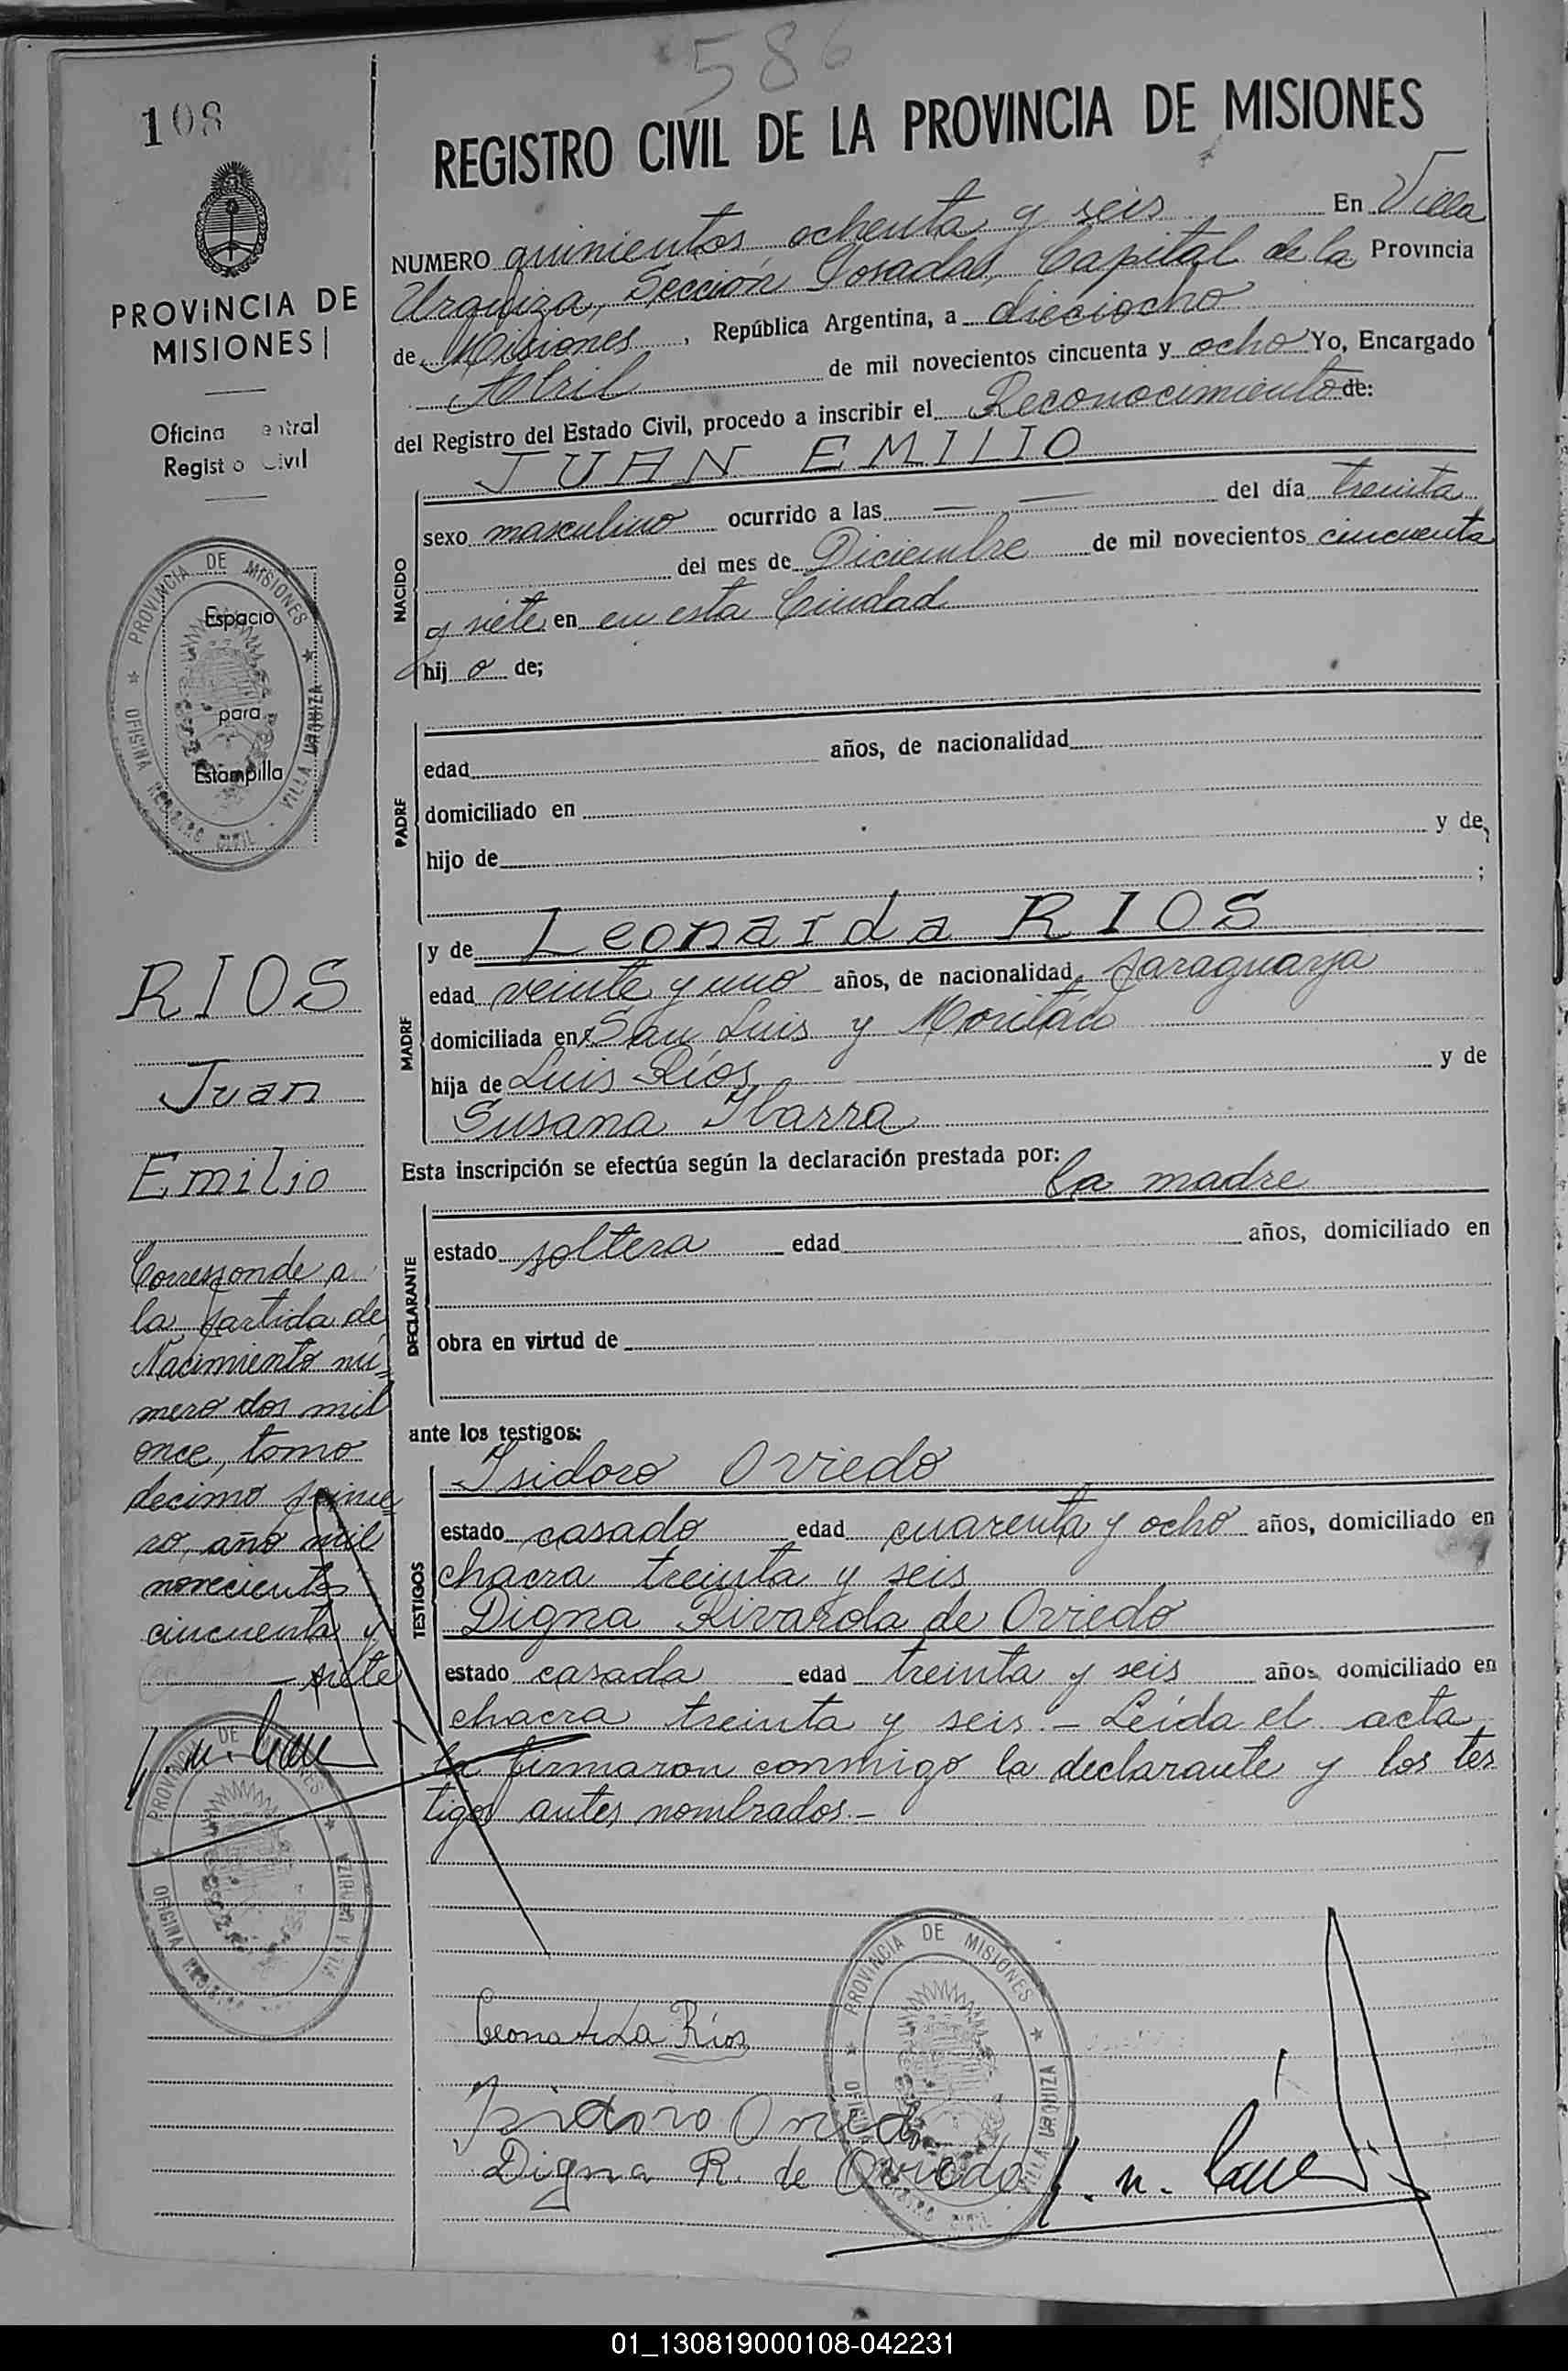 586
108
REGISTRO CIVIL DE LA PROVINCIA DE MISIONES
PROVINCIA DE
MISIONES
Oficina entral
Regist o Civil
NUMERO quinientos ochenta y seis En Villa
Urquiza, Sección Posadas, Capital de la Provincia
de Misiones, República Argentina, a dieciocho
Abril de mil novecientos cincuenta y ocho Yo, Encargado
del Registro del Estado Civil, procedo a inscribir el Reconocimiento de:
JUAN EMILIO
NACIDO
sexo masculino ocurrido a las — — del día treinta
del mes de Diciembre de mil novecientos cincuenta
y siete en en esta Ciudad
hij o de;
PROVINCIA DE MISIONES
OFICINA REGISTRO CIVIL - VILLA URQUIZA
Espacio
para
Estampilla
PADRE
edad años, de nacionalidad
domiciliado en
hijo de y de
;
MADRE
y de Leonarda RIOS
edad veinte y uno años, de nacionalidad Paraguaya
domiciliada en San Luis y
hija de Luis Ríos y de
Susana Ibarra
Esta inscripción se efectúa según la declaración prestada por:
la madre
DECLARANTE
estado soltera edad años, domiciliado en
obra en virtud de
ante los testigos:
TESTIGOS
Isidoro Oviedo
estado casado edad cuarenta y ocho años, domiciliado en
chacra treinta y seis
Digna Rivarola de Oviedo
estado casada edad treinta y seis años, domiciliado en
chacra treinta y seis. - Leída el acta
la firmaron conmigo la declarante y los tes
tigos antes nombrados. -
RIOS
Juan
Emilio
Corresponde a
la partida de
Nacimiento nú=
mero dos mil
once, tomo
decimo prime
ro, año mil
novecientos
cincuenta y
- siete
PROVINCIA DE MISIONES
OFICINA VILLA URQUIZA
Leonarda Ríos
Isidoro Oviedo
Digna R. de Oviedo
PROVINCIA DE MISIONES
VILLA URQUIZA
01_130819000108-042231